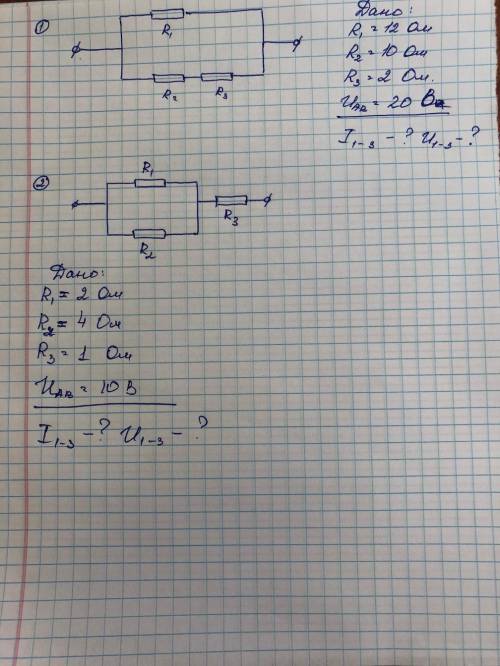 1
R₁
R₂ R₃
Дано:
R₁ = 12 Ом
R₂ = 10 Ом
R₃ = 2 Ом.
U_AB = 20 В
I₁₋₃ - ? U₁₋₃ - ?
2
R₁
R₃
R₂
Дано:
R₁ = 2 Ом
R₂ = 4 Ом
R₃ = 1 Ом
U_AB = 10 В
I₁₋₃ - ? U₁₋₃ - ?